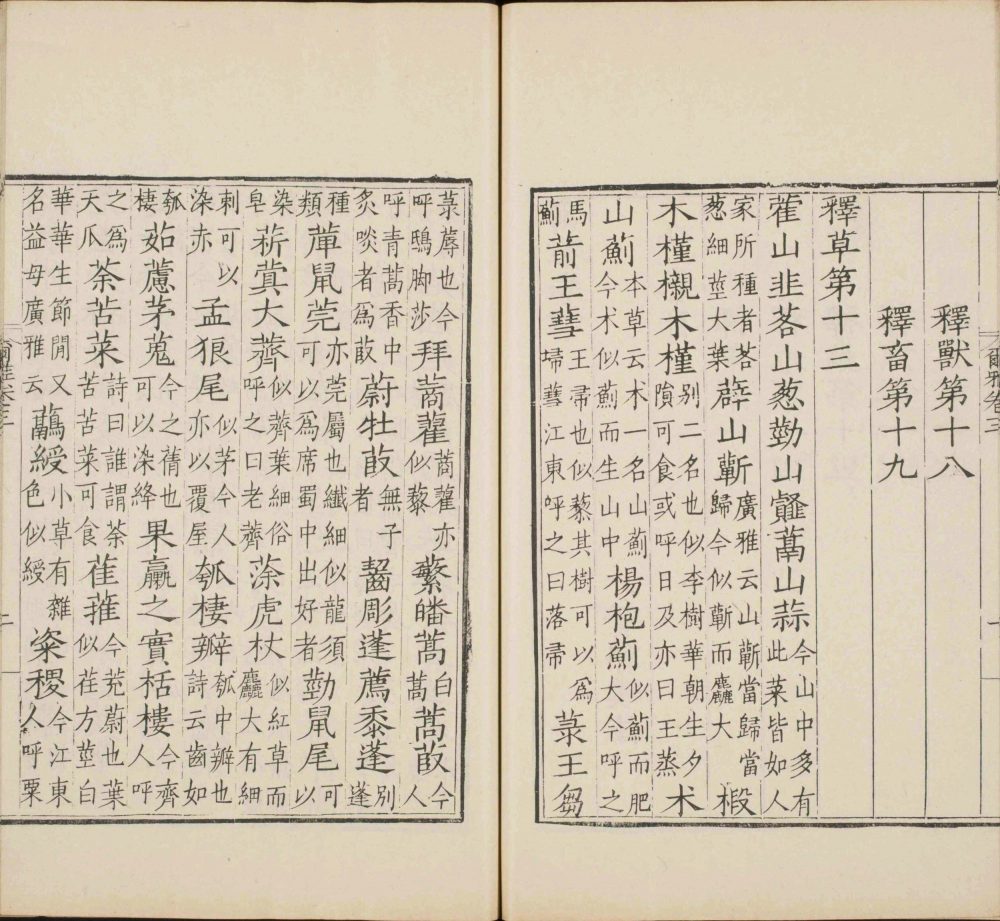 爾雅卷三
釋獸第十八
釋畜第十九
釋草第十三
藿山韭茖山葱葝山䪥蒚山蒜今山中多有此菜皆如人
家所種者茖葱細莖大葉薜山蘄廣雅云山蘄當歸當歸今似蘄而麤大椴
木槿櫬木槿别二名也似李樹華朝生夕隕可食或呼日及亦曰王蒸术
山薊本草云术一名山薊今术似薊而生山中楊枹薊似薊而肥大今呼之
馬薊葥王蔧王帚也似藜其樹可以爲埽蔧江東呼之曰落帚菉王芻
菉蓐也今呼鴟脚莎拜蔏藋蔏藋亦似藜蘩皤蒿白蒿蒿菣今人
呼青蒿香中炙啖者爲菣蔚牡菣無子者齧彫蓬薦黍蓬别蓬
種類蓽鼠莞亦莞屬也纖細似龍須可以爲席蜀中出好者葝鼠尾可以
染皂菥蓂大薺似薺葉細俗呼之曰老薺蒤虎杖似紅草而麤大有細
刺可以染赤孟狼尾似茅今人亦以覆屋瓠棲瓣瓠中瓣也詩云齒如
瓠棲茹藘茅蒐今之蒨也可以染絳果臝之實栝樓今齊人呼
之爲天瓜荼苦菜詩曰誰謂荼苦苦菜可食萑蓷今茺蔚也葉似荏方莖白
華華生節閒又名益母廣雅云虉綬小草有雜色似綬粢稷今江東人呼粟